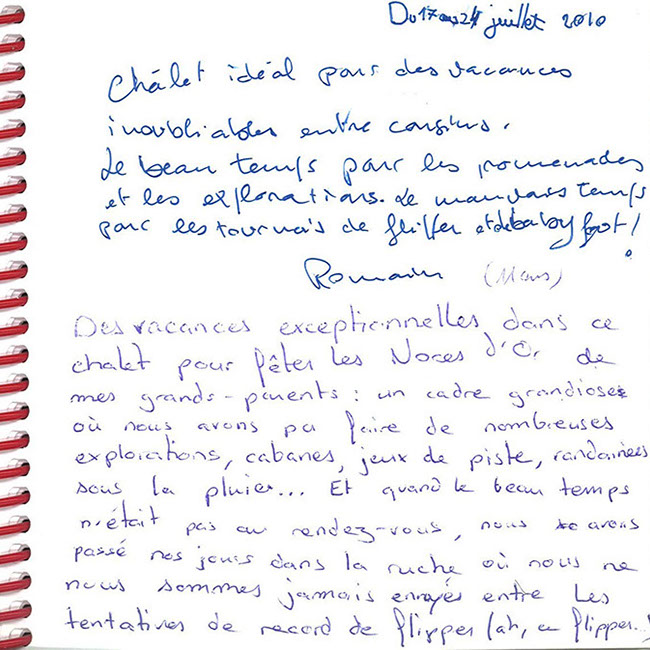 Du 17 au 24 juillet 2010
Châlet idéal pour des vacances
inoubliables entre cousins.
Le beau temps pour les promenades
et les explorations. Le mauvais temps
pour les tournois de flipper et de baby foot !
Romain (Mans)
Des vacances exceptionnelles dans ce
chalet pour fêter les Noces d'Or de
mes grands-parents : un cadre grandiose
où nous avons pu faire de nombreuses
explorations, cabanes, jeux de piste, randonnées
sous la pluie... Et quand le beau temps
n'était pas au rendez-vous, nous avons
passé nos jours dans la ruche où nous ne
nous sommes jamais ennuyés entre les
tentatives de record de flipper (ah, ce flipper...)